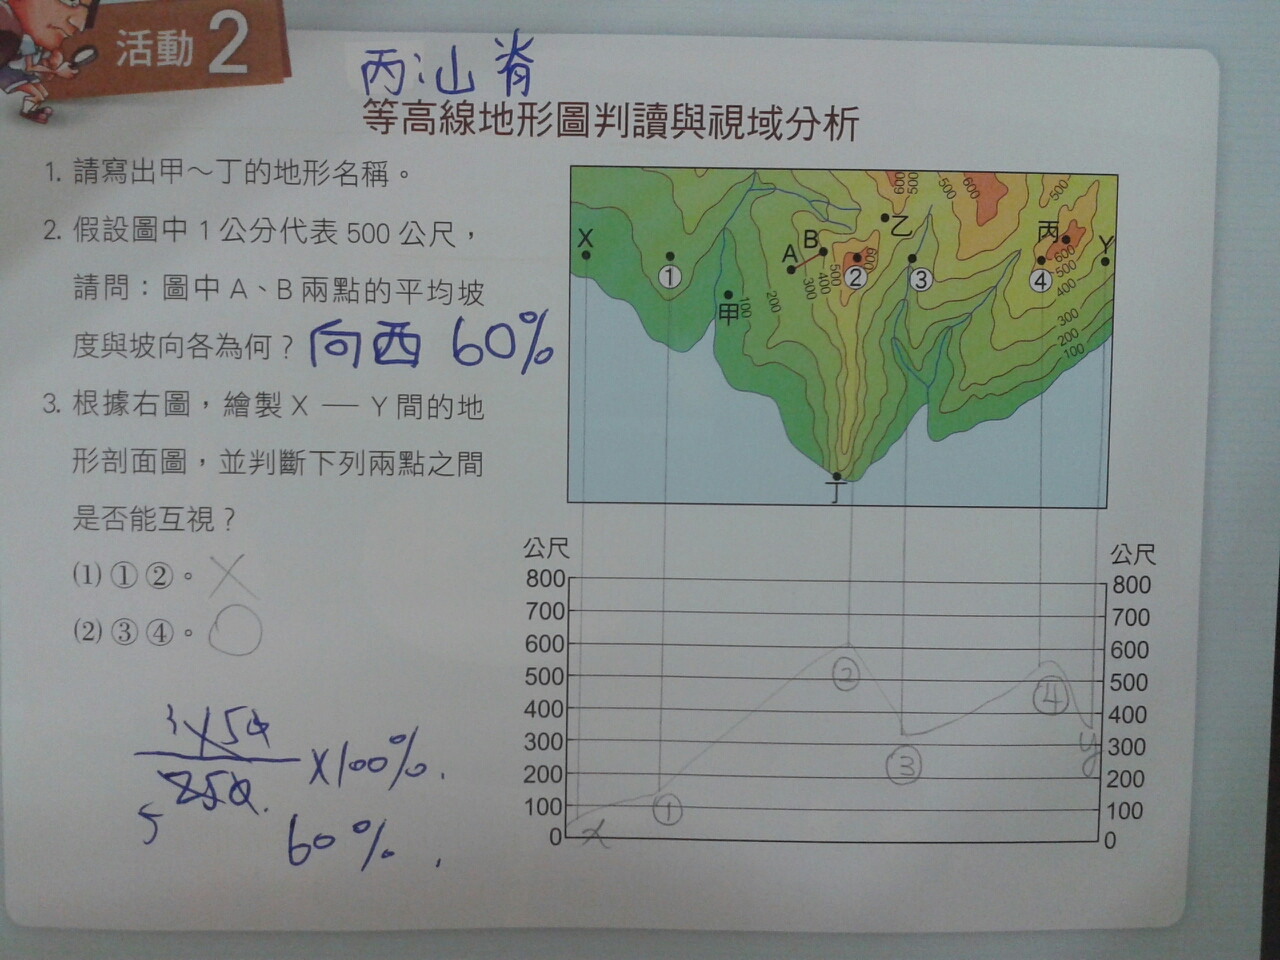 活動2
丙:山脊
等高線地形圖判讀與視域分析
1. 請寫出甲～丁的地形名稱。
2. 假設圖中1公分代表500公尺，
請問：圖中A、B兩點的平均坡
度與坡向各為何？ 向西 60%
3. 根據右圖，繪製X — Y間的地
形剖面圖，並判斷下列兩點之間
是否能互視？
(1) ①②。 X
(2) ③④。 ○
150
250
×100%.
3
5
60%.
X
①
甲
A
B
②
乙
③
丙
④
Y
丁
100
200
300
400
500
600
600
500
500
600
500
600
500
400
300
200
100
公尺
800
700
600
500
400
300
200
100
0
公尺
800
700
600
500
400
300
200
100
0
x
①
②
③
④
y